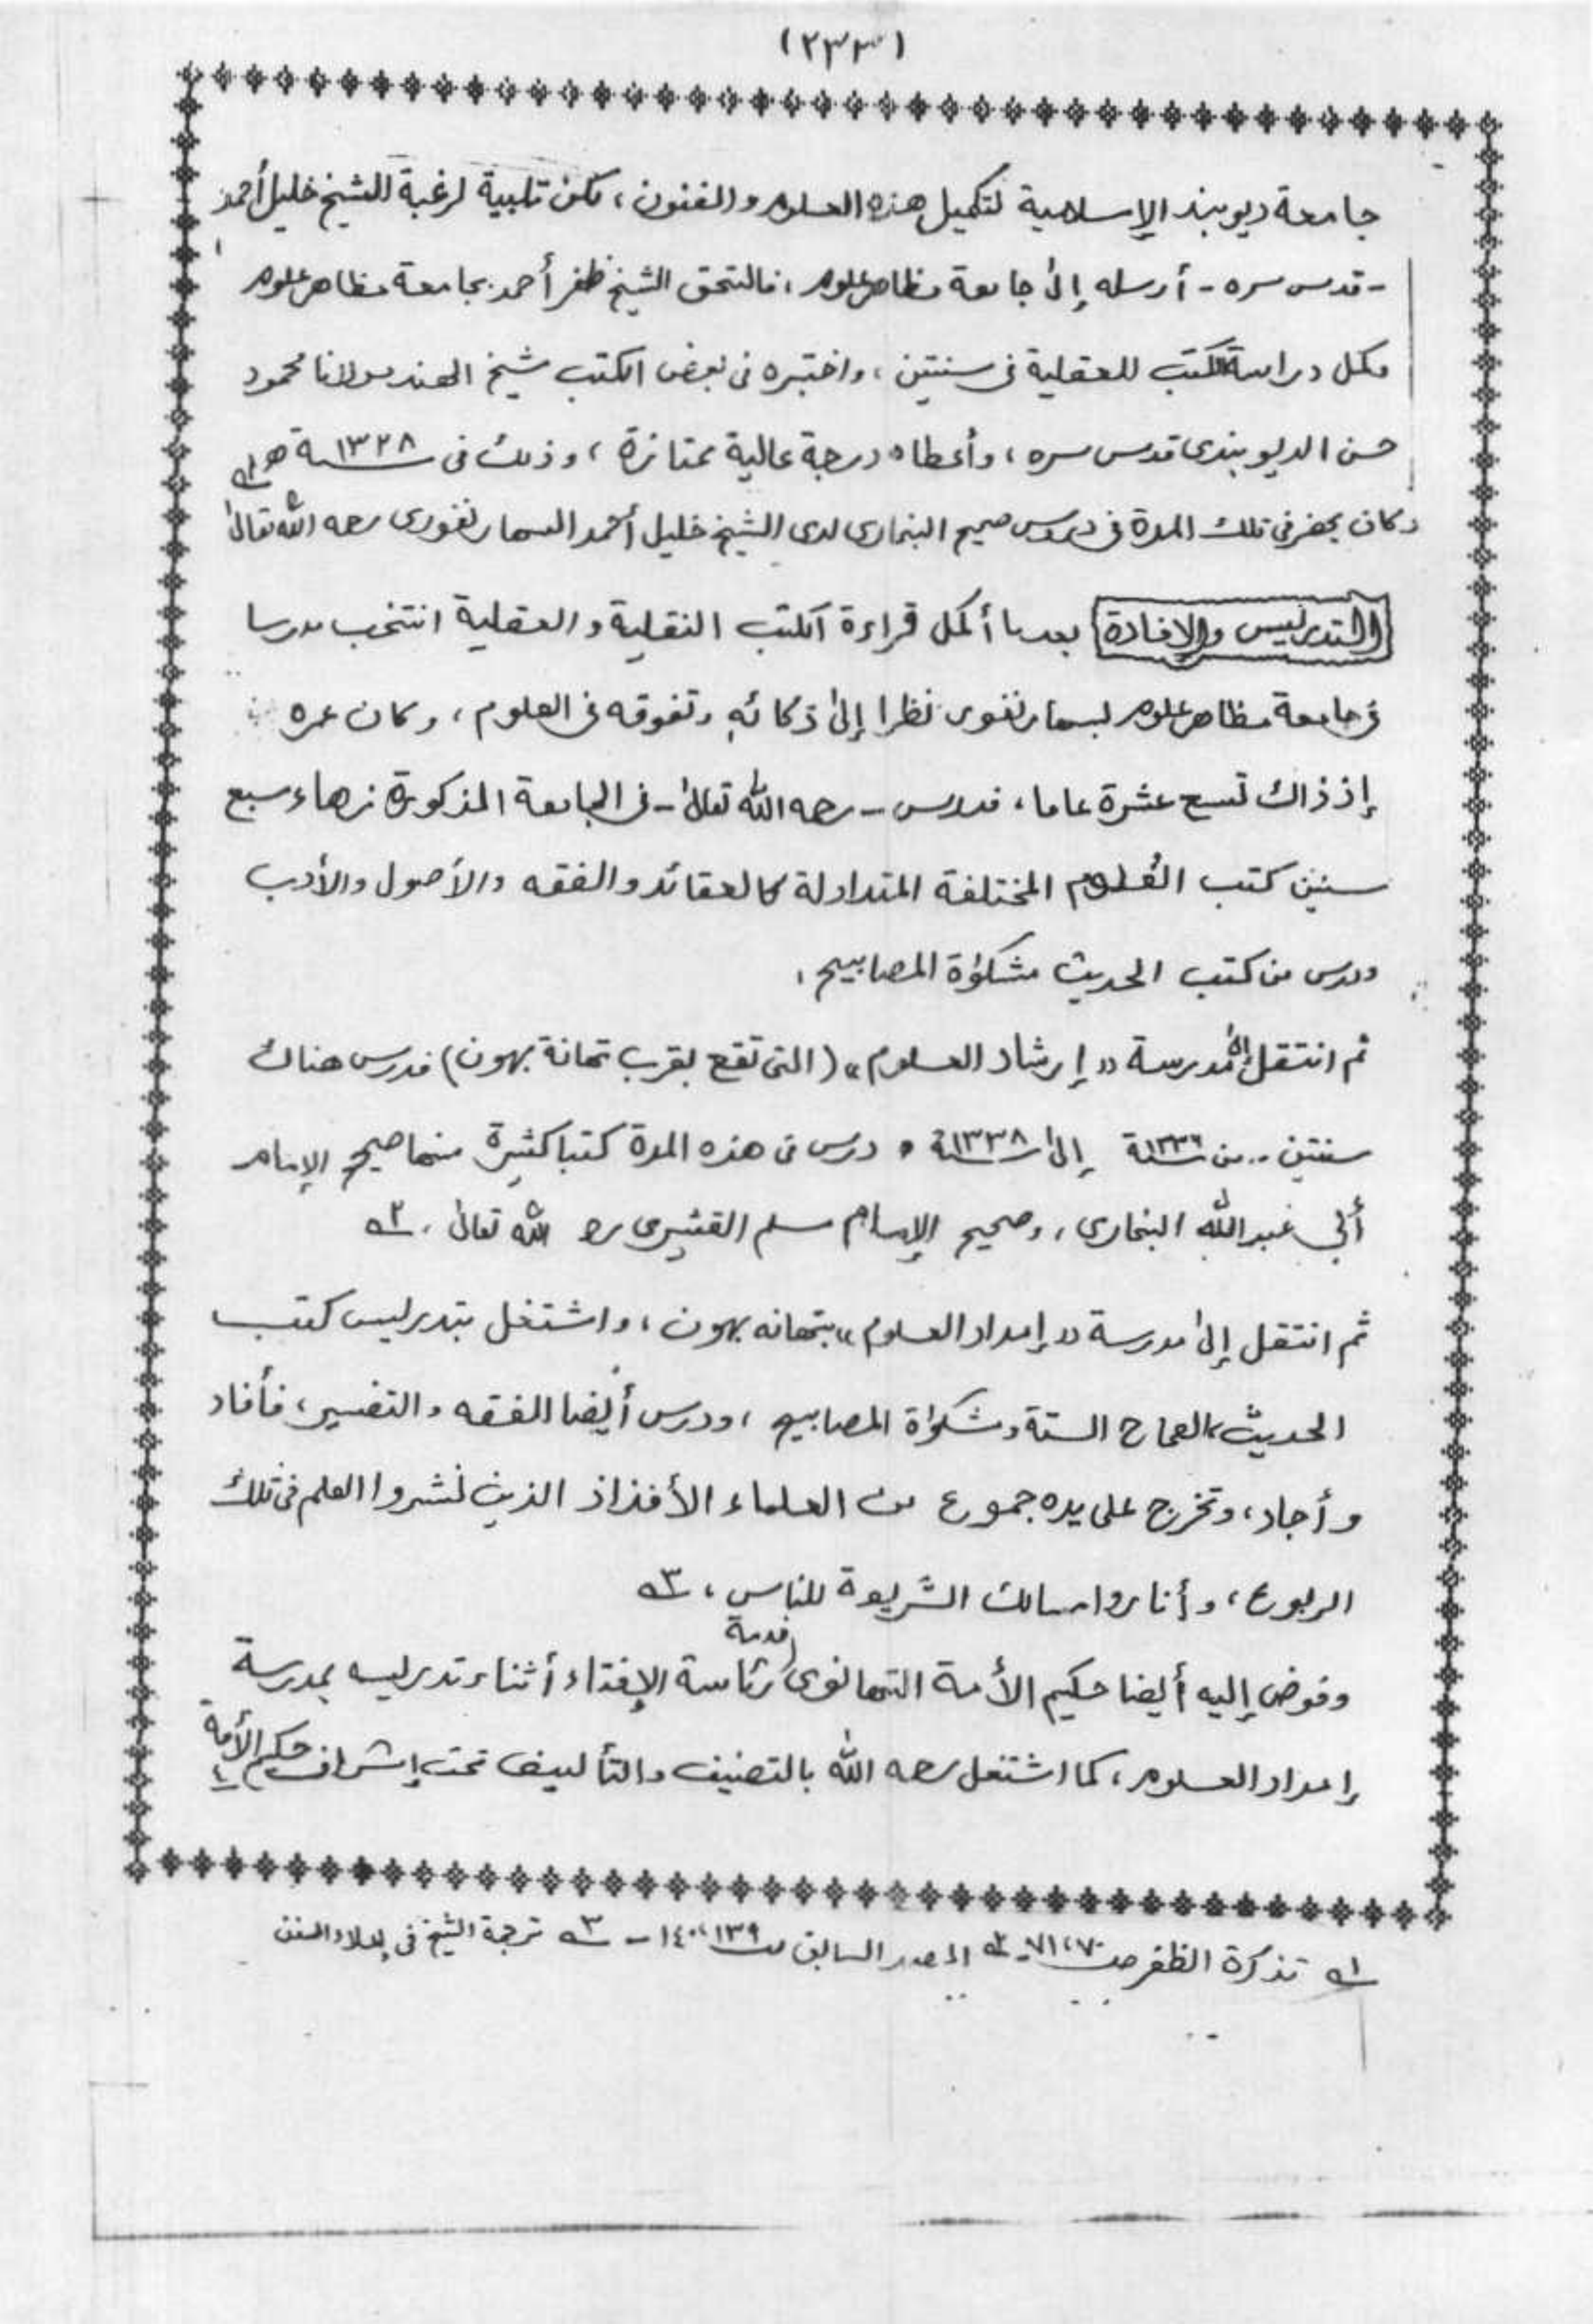 (٢٣٣)
جامعة ديوبند الإسلامية لتكميل هذه العلوم والفنون، لكن تلبية لرغبة الشيخ خليل أحمد
- قدس سره - أرسله إلى جامعة مظاهر علوم، فالتحق الشيخ ظفر أحمد بجامعة مظاهر علوم
وكمل دراسة الكتب العقلية فى سنتين، واختبره فى بعض الكتب شيخ الهند مولانا محمود
حسن الديوبندى قدس سره، وأعطاه درجة عالية ممتازة، وذلك فى سنة ١٣٢٨ ھ ١ه
وكان يحضر فى تلك المدة فى دروس صحيح البخارى لدى الشيخ خليل أحمد السهارنفورى رحمه الله تعالى
التدريس والإفادة بعد ما أكمل قراءة الكتب النقلية والعقلية انتخب مدرسا
فى جامعة مظاهر علوم بسهارنفور نظرا إلى ذكائه وتفوقه فى العلوم، وكان عمره
إذ ذاك تسع عشرة عاما، فدرس - رحمه الله تعالى - فى الجامعة المذكورة زهاء سبع
سنين كتب العلوم المختلفة المتداولة كالعقائد والفقه والأصول والأدب
ودرس من كتب الحديث مشكوٰة المصابيح،
ثم انتقل إلى مدرسة «إرشاد العلوم» (التى تقع بقرب تهانة بهون) فدرس هناك
سنتين .. من سنة ١٣٣٦ إلى سنة ١٣٣٨ و درس فى هذه المدة كتبا كثيرة منها صحيح الإمام
أبى عبد الله البخارى، وصحيح الإمام مسلم القشيرى رحمه الله تعالى. ٢ه
ثم انتقل إلى مدرسة «إمداد العلوم» بتهانه بهون، واشتغل بتدريس كتب
الحديث، الصحاح الستة ومشكوٰة المصابيح، ودرس أيضا الفقه والتفسير، فأفاد
وأجاد، وتخرج على يده جموع من العلماء الأفذاذ الذين نشروا العلم فى تلك
الربوع، وأناروا مسالك الشريعة للناس، ٣ه
وفوض إليه أيضا حكيم الأمة التهانوى خدمة رئاسة الإفتاء أثناء تدريسه بمدرسة
إمداد العلوم، كما اشتغل رحمه الله بالتصنيف والتأليف تحت إشراف حكيم الأمة
١ه تذكرة الظفر ص ٧٠،٧١ - ٢ه المصدر السابق ص ١٣٩، ١٤٠ - ٣ه ترجمة الشيخ فى إعلاء السنن